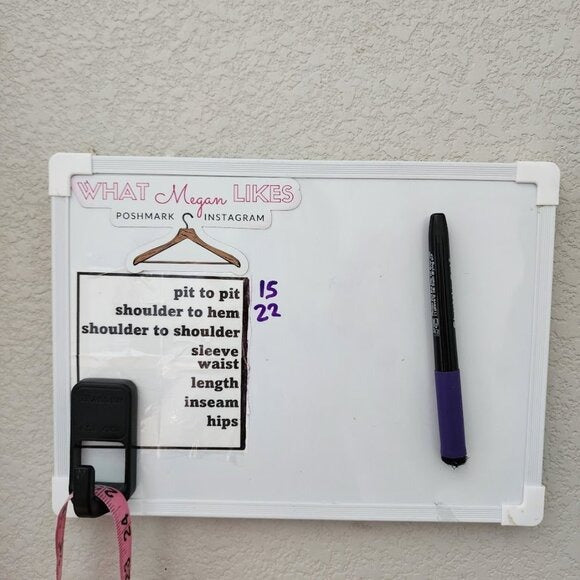 WHAT Megan LIKES
POSHMARK INSTAGRAM
pit to pit 15
shoulder to hem 22
shoulder to shoulder
sleeve
waist
length
inseam
hips
24